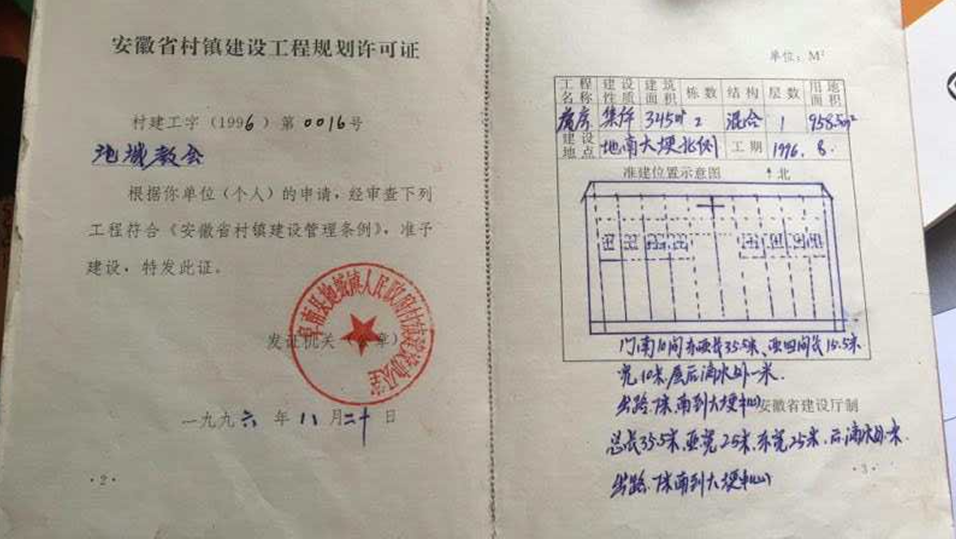 安徽省村镇建设工程规划许可证
村建工字（1996）第0016号
地城教会
根据你单位（个人）的申请，经审查下列
工程符合《安徽省村镇建设管理条例》，准予
建设，特发此证。
发证机关（章）
阜南县地城镇人民政府村镇建设办公室
一九九六年八月二十日
·2·
单位：M²
工程名称 建设性质 建筑面积 栋数 结构 层数 用地面积
房 集体 345㎡ 2 混合 1 958.5m²
建设地点 地南大埂北侧 工期 1996.8.
准建位置示意图 ↑北
门南10间东西长35.5米、西四间长15.5米
宽10米.屋后滴水外一米.
出路.南到大埂中心
安徽省建设厅制
总长35.5米,西宽25米,东宽25米,后滴水外一米.
出路.南到大埂中心
·3·